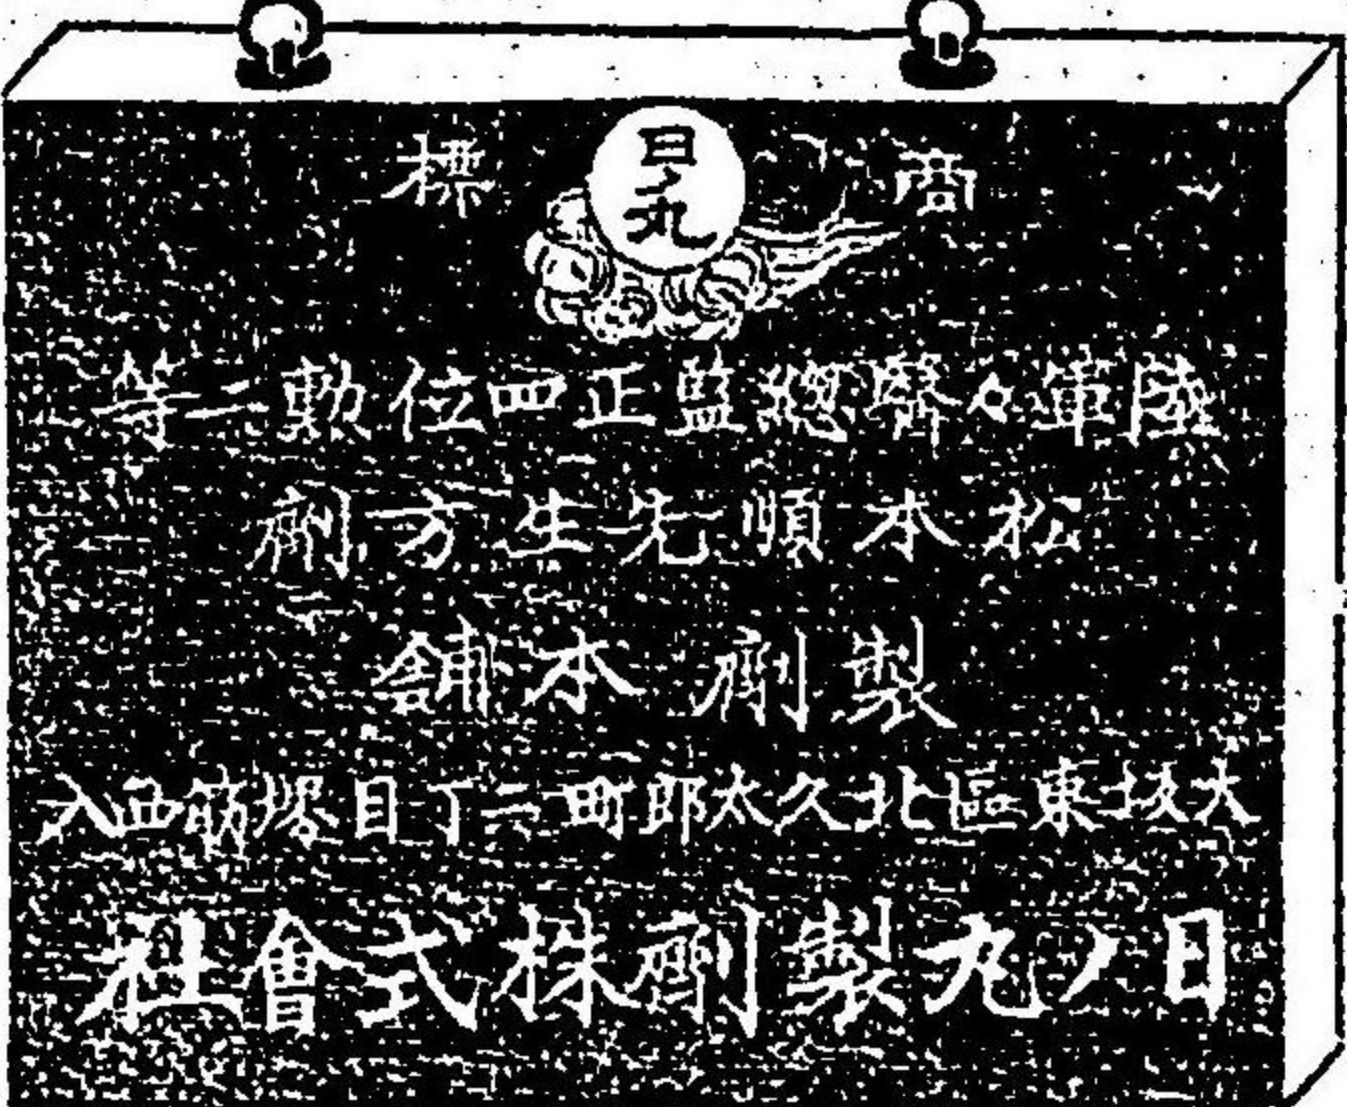 商標
日ノ丸
陸軍々醫總監正四位勲二等
松本順先生方劑
製劑本舖
大坂東區北久太郎町二丁目堺筋西入
日ノ丸製劑株式會社